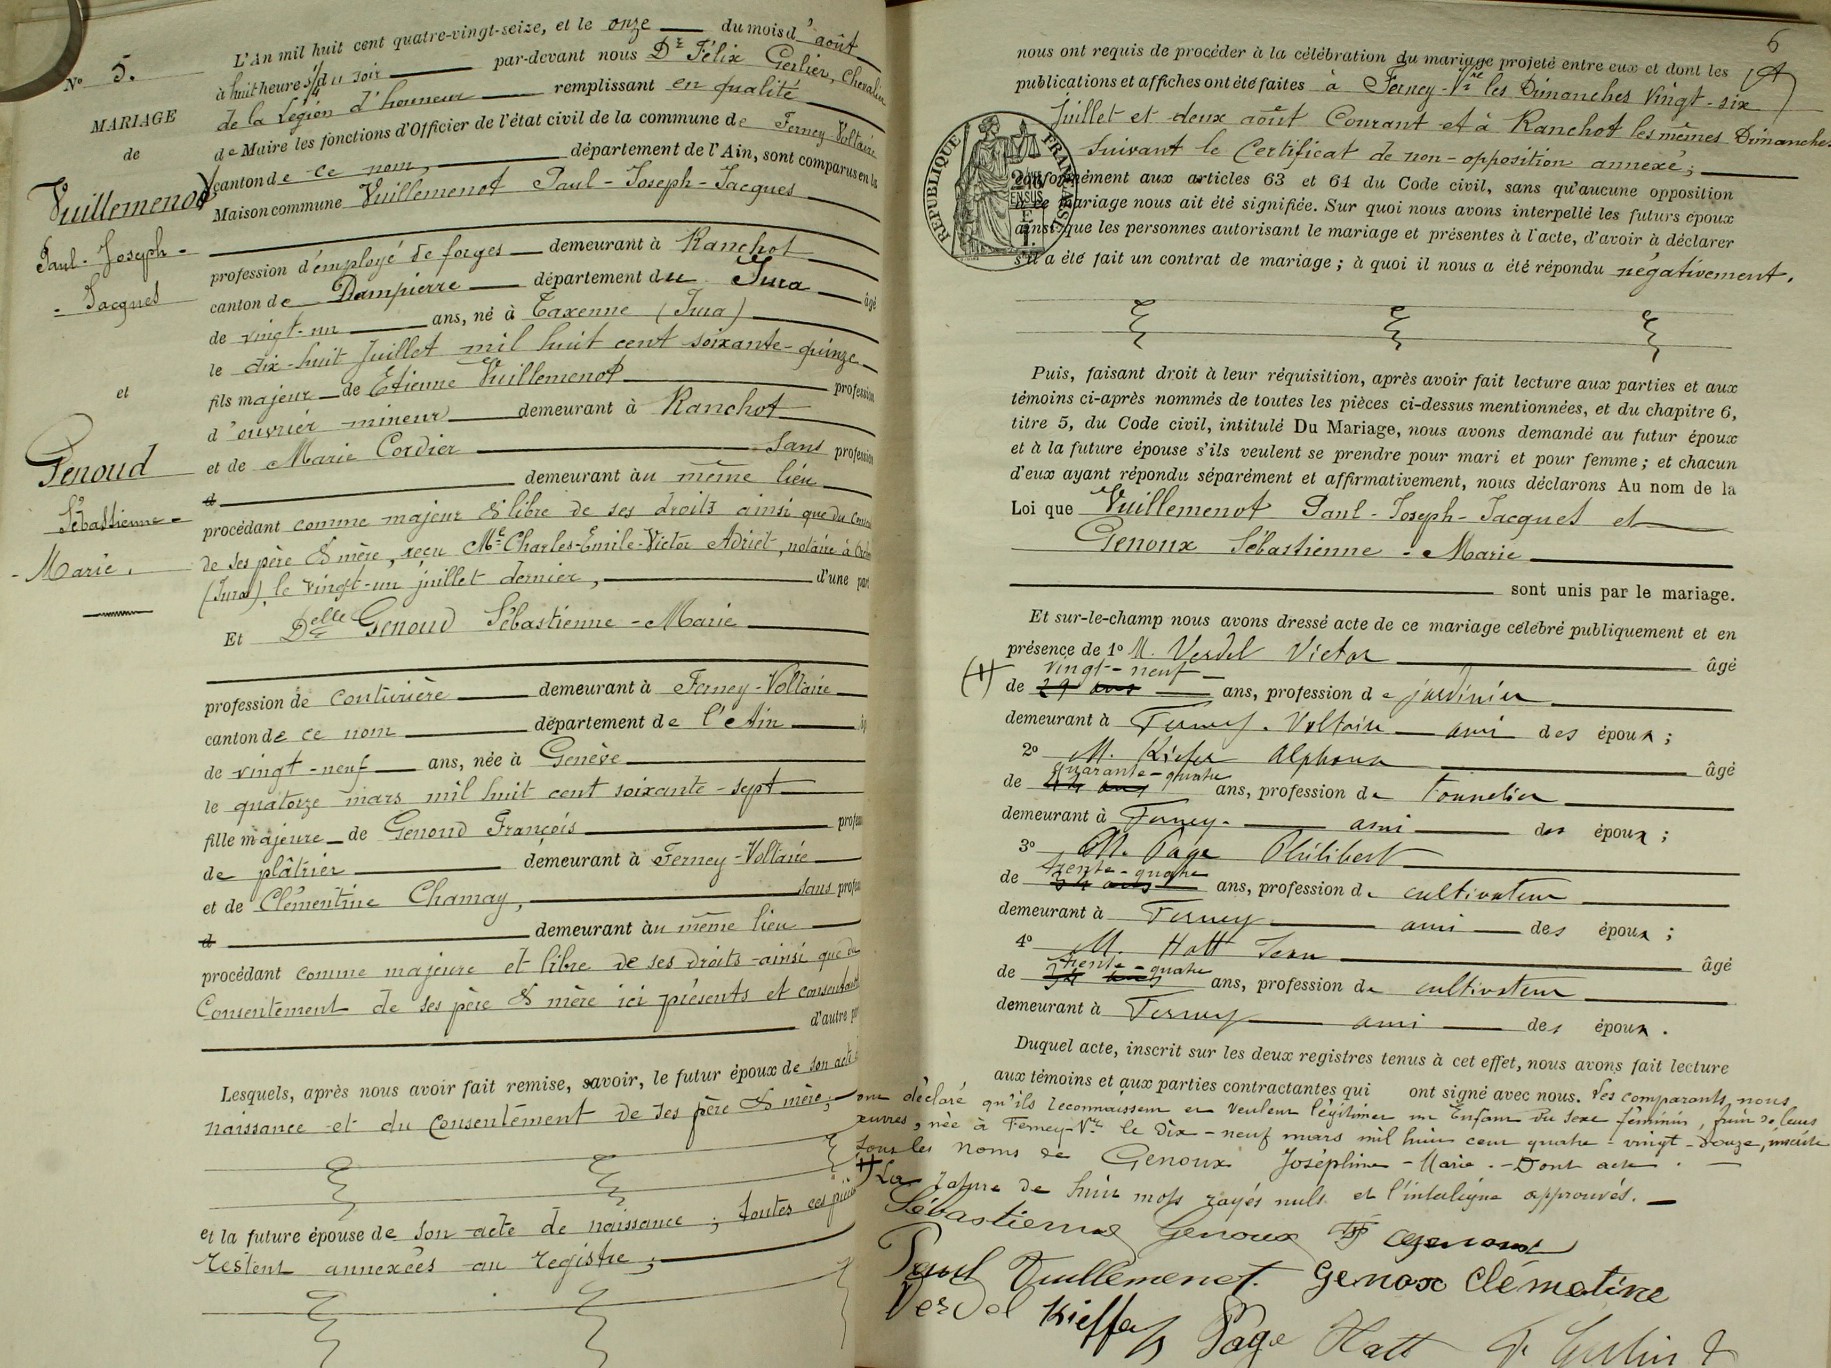 N° 5.
MARIAGE
de
Vuillemenot
Paul-Joseph-
-Jacques
et
Genoud
Sébastienne-
-Marie.
L'An mil huit cent quatre-vingt-seize, et le onze du mois d'août
à huit heures 1/4 du soir par-devant nous Dr Félix Gerlier, Chevalier
de la Légion d'honneur remplissant en qualité
de Maire les fonctions d'Officier de l'état civil de la commune de Ferney-Voltaire
canton de ce nom, département de l'Ain, sont comparus en la
Maison commune Vuillemenot Paul-Joseph-Jacques
profession d'employé de forges demeurant à Ranchot
canton de Dampierre département du Jura âgé
de vingt-un ans, né à Taxenne (Jura)
le dix-huit Juillet mil huit cent soixante-quinze
fils majeur de Etienne Vuillemenot profession
d'ouvrier mineur demeurant à Ranchot
et de Marie Cordier Sans profession
d demeurant au même lieu
procédant comme majeur & libre de ses droits ainsi que du
de ses père & mère, reçu Me Charles-Emile-Victor Adriet, notaire à
(Jura) le vingt-un juillet dernier, d'une part
Et Delle Genoud Sébastienne-Marie
profession de couturière demeurant à Ferney-Voltaire
canton de ce nom département de l'Ain
de vingt-neuf ans, née à Genève
le quatorze mars mil huit cent soixante-sept
fille majeure de Genoud François
de plâtrier demeurant à Ferney-Voltaire
et de Clémentine Chamay, sans
d demeurant au même lieu
procédant comme majeure et libre de ses droits ainsi que du
Consentement de ses père & mère ici présents et
d'autre
Lesquels, après nous avoir fait remise, savoir, le futur époux de son acte de
naissance et du consentement de ses père & mère;
et la future épouse de son acte de naissance; toutes ces
restent annexées au registre;
6
nous ont requis de procéder à la célébration du mariage projeté entre eux et dont les
publications et affiches ont été faites à Ferney-Vre les Dimanches vingt-six
Juillet et deux août Courant et à Ranchot les mêmes Dimanches
suivant le Certificat de non-opposition annexé;
conformément aux articles 63 et 64 du Code civil, sans qu'aucune opposition
à ce mariage nous ait été signifiée. Sur quoi nous avons interpellé les futurs époux
ainsi que les personnes autorisant le mariage et présentes à l'acte, d'avoir à déclarer
s'il a été fait un contrat de mariage; à quoi il nous a été répondu négativement.
RÉPUBLIQUE FRANÇAISE
Puis, faisant droit à leur réquisition, après avoir fait lecture aux parties et aux
témoins ci-après nommés de toutes les pièces ci-dessus mentionnées, et du chapitre 6,
titre 5, du Code civil, intitulé Du Mariage, nous avons demandé au futur époux
et à la future épouse s'ils veulent se prendre pour mari et pour femme; et chacun
d'eux ayant répondu séparément et affirmativement, nous déclarons Au nom de la
Loi que Vuillemenot Paul-Joseph-Jacques et
Genoux Sébastienne-Marie
sont unis par le mariage.
Et sur-le-champ nous avons dressé acte de ce mariage célébré publiquement et en
présence de 1° M. Verdel Victor âgé
vingt-neuf
de 29 ans ans, profession de jardinier
demeurant à Ferney-Voltaire ami des époux;
2° M. Kiefer Alphonse âgé
quarante-quatre
de 44 ans ans, profession de tonnelier
demeurant à Ferney- ami des époux;
3° M. Page Philibert
trente-quatre
de 34 ans ans, profession de cultivateur
demeurant à Ferney ami des époux;
4° M. Hatt Jean âgé
trente-quatre
de 34 ans ans, profession de cultivateur
demeurant à Ferney ami des époux.
Duquel acte, inscrit sur les deux registres tenus à cet effet, nous avons fait lecture
aux témoins et aux parties contractantes qui ont signé avec nous. Les comparants nous
ont déclaré qu'ils reconnaissent et veulent légitimer un Enfant du sexe féminin, fruit de leurs
œuvres, née à Ferney-Vre le Dix-neuf mars mil huit cent quatre-vingt-douze, inscrite
sous les noms de Genoux Joséphine-Marie.-Dont acte.
La rature de huit mots rayés nuls et l'interligne approuvés.
Sébastienne Genoux
Paul Vuillemenot. Genox Clématine
Verdel Kieffer Page Hatt F. Gerlier